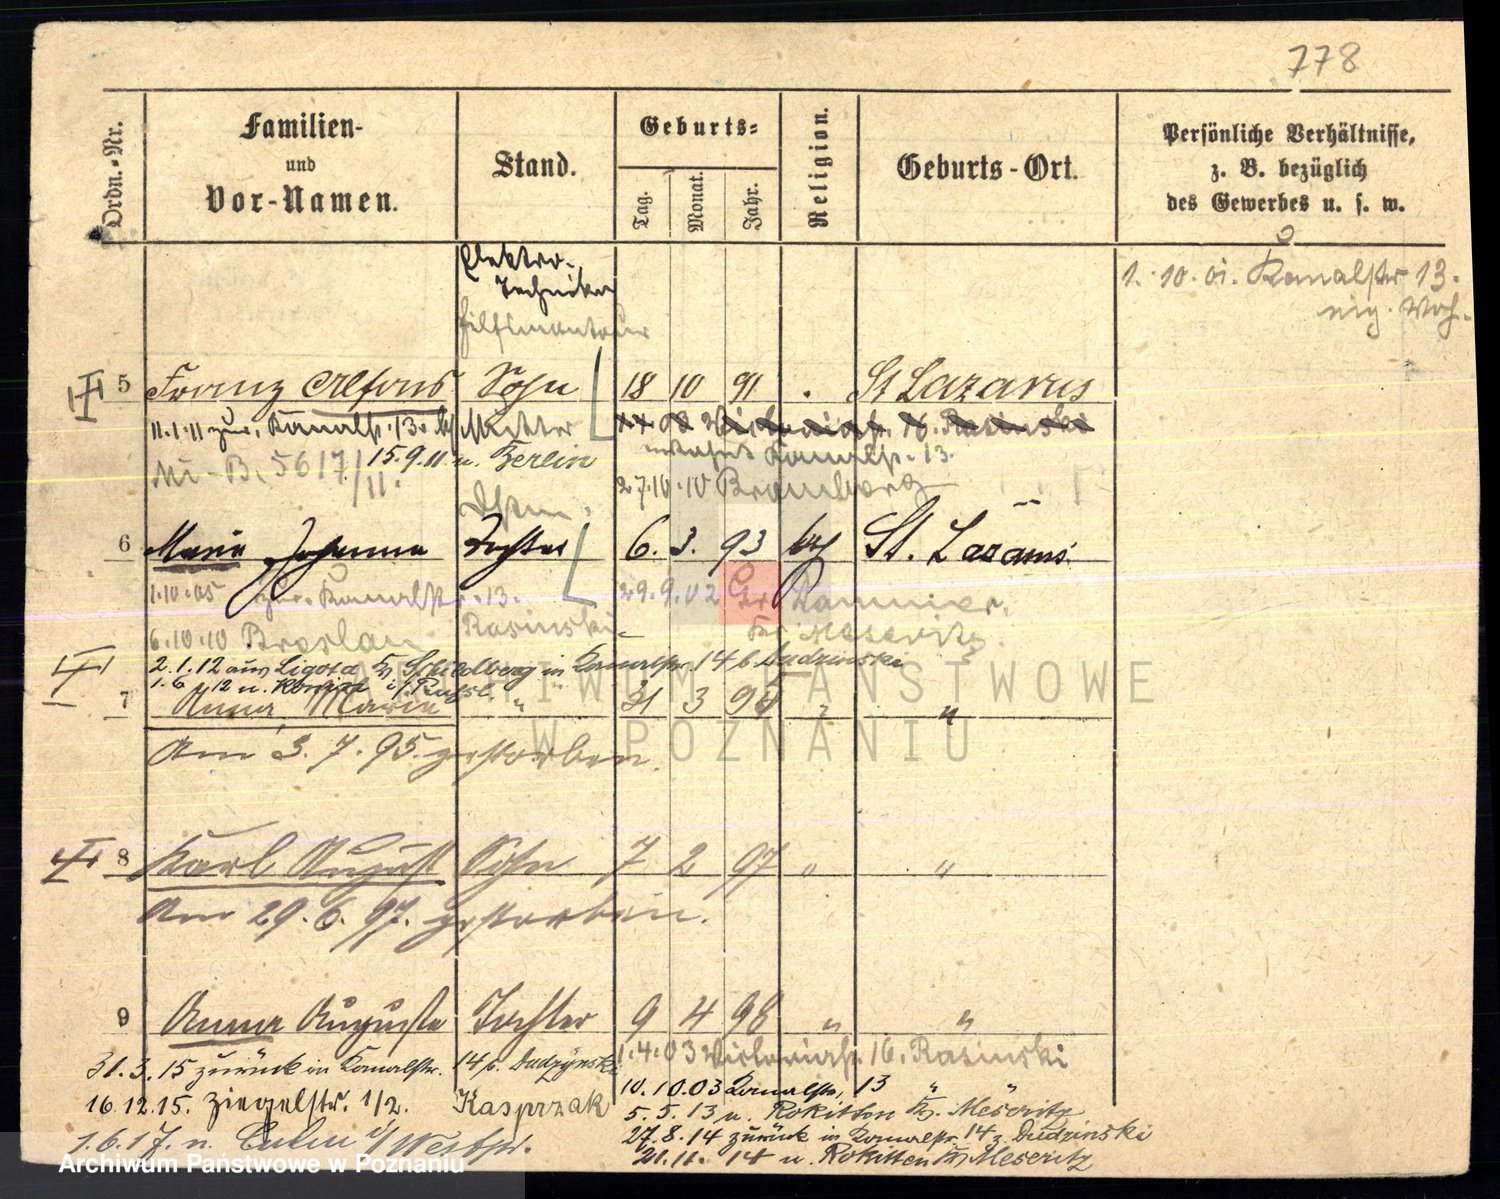 778
Ordn.-Nr.
Familien-
und
Vor-Namen.
Stand.
Geburts-
Tag.
Monat.
Jahr.
Religion.
Geburts-Ort.
Persönliche Verhältnisse,
z. B. bezüglich
des Gewerbes u. s. w.
Elektro-
Techniker
1. 10. 01. Kanalstr 13.
5 Franz Alfons Sohn 18 10 91 St Lazarus
11.1.11 zur. Kanalstr. 13. Mutter
Kanalstr. 13.
15.9.11 n. Berlin
27.10.10 Bromberg
6 Maria Johanna Tochter 6. 3. 93 kath St. Lazarus
1.10.05 zur. Kanalstr. 13. 29.9.02
Rasinski
Kr. Meseritz
6.10.10 Breslau
2.1.12 aus Ligota Kr. Schildberg in Kanalstr. 14 b. Dudzinski
1.6.12 n.
7 Anna Maria " 31 3 95 " "
Am 3. 7. 95. gestorben.
8 Karl August Sohn 7 2 97 " "
Am 29. 6. 97. gestorben.
9 Anna Auguste Tochter 9 4 98 " "
1.4.03 Victoriastr. 16. Rasinski
31.3.15 zurück in Kanalstr. 14 b. Dudzynski
10.10.03 Kanalstr. 13 " "
16.12.15. Ziegelstr. 1/2. Kasprzak
5.5.13 n. Rokitten Kr. Meseritz
27.8.14 zurück in Kanalstr. 14 z. Dudzinski
1.6.17. n. Culm i/Westpr.
21.11.14 n. Rokitten Kr. Meseritz
ARCHIWUM PAŃSTWOWE
W POZNANIU
Archiwum Państwowe w Poznaniu